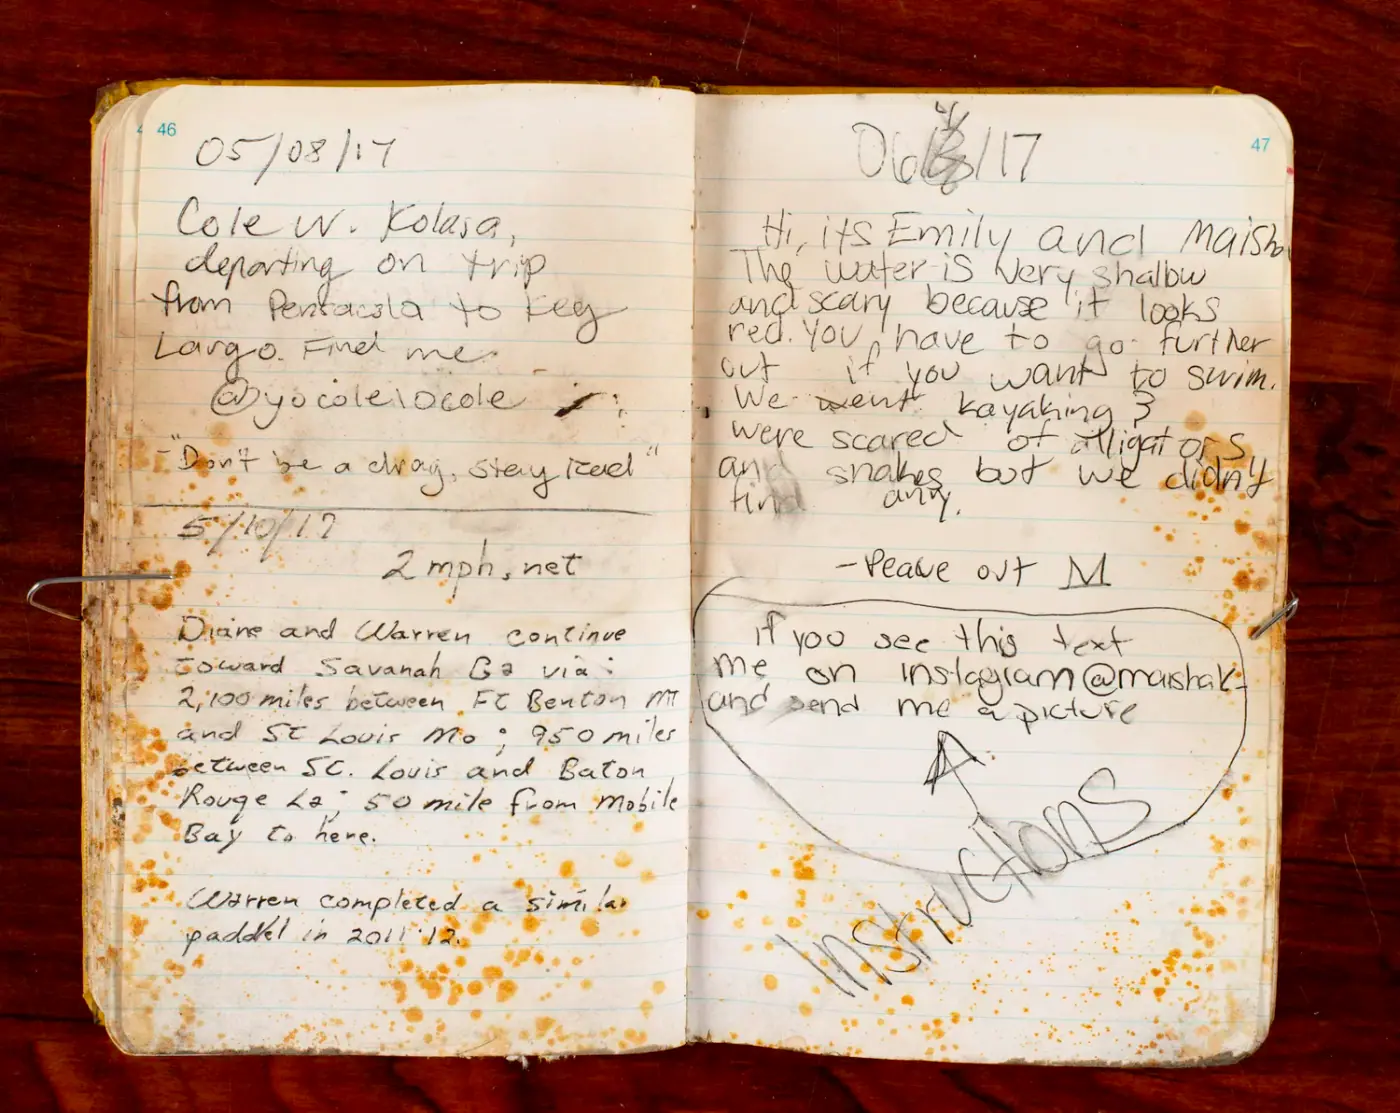 46
05/08/17
Cole W. Kolasa,
departing on trip
from Pentacola to Key
Largo. Find me
@yocolelocole
-"Don't be a drag, stay real"
5/10/17
2mph.net
Diane and Warren continue
toward Savanah Ga via:
2,100 miles between Ft Benton MT
and St Louis Mo; 950 miles
between St. Louis and Baton
Rouge La; 50 mile from Mobile
Bay to here.
Warren completed a similar
paddel in 2011 12.
47
06/ /17
Hi, its Emily and Maisha
The water is very shallow
and scary because it looks
red. You have to go further
out if you want to swim.
We went kayaking &
were scared of alligators
and snakes but we didn't
find any.
-Peace out M
if you see this text
me on instagram@maishak-
and send me a picture
Instructions